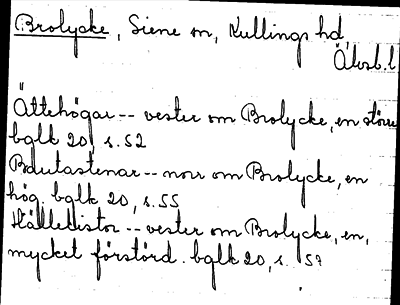 Brolycke, Siene sn, Kullings hd,
Älvsb. l
Ättehögar -- vester om Brolycke, en större
bglk 20, s. 52
Bautastenar -- norr om Brolycke, en
hög. bglk 20, s. 55
Hällekistor -- vester om Brolycke, en,
mycket förstörd. bglk 20, s.